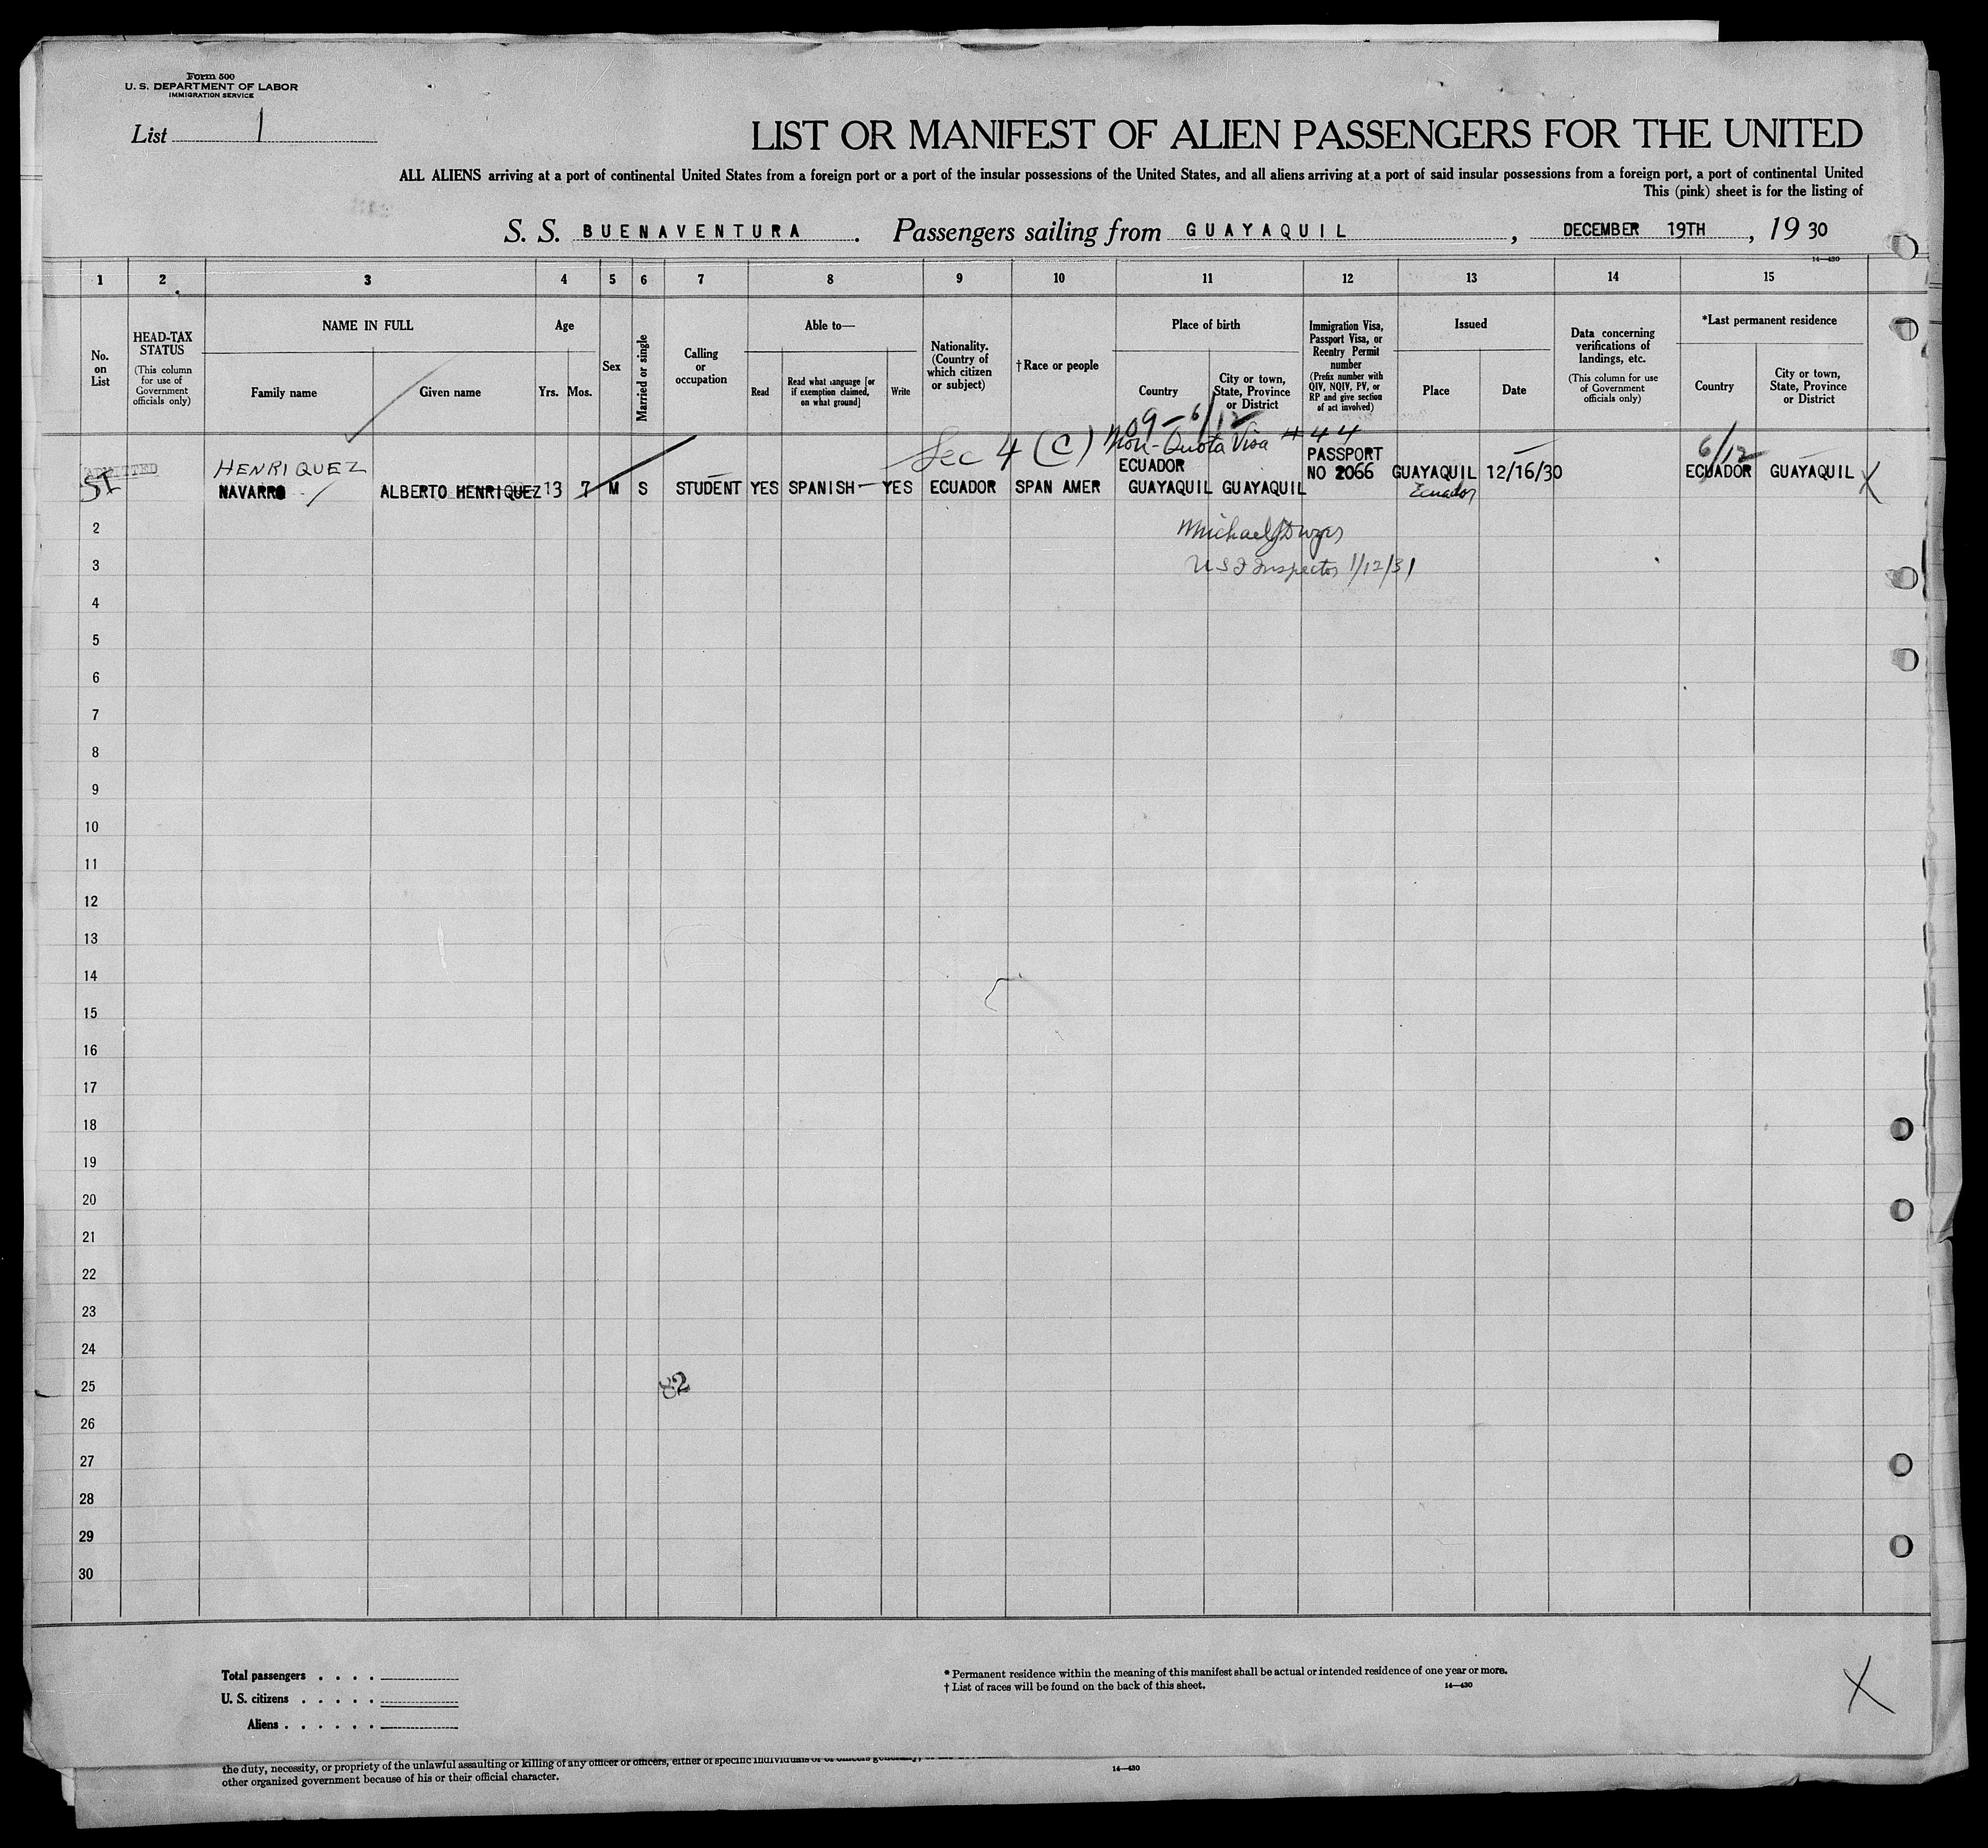 Form 500
U. S. DEPARTMENT OF LABOR
IMMIGRATION SERVICE
List 1
LIST OR MANIFEST OF ALIEN PASSENGERS FOR THE UNITED
ALL ALIENS arriving at a port of continental United States from a foreign port or a port of the insular possessions of the United States, and all aliens arriving at a port of said insular possessions from a foreign port, a port of continental United
This (pink) sheet is for the listing of
S. S. BUENAVENTURA. Passengers sailing from GUAYAQUIL, DECEMBER 19TH, 19 30
14—430
1 2 3 4 5 6 7 8 9 10 11 12 13 14 15
No. on List
HEAD-TAX STATUS (This column for use of Government officials only)
NAME IN FULL
Family name
Given name
Age
Yrs. Mos.
Sex
Married or single
Calling or occupation
Able to—
Read
Read what language [or if exemption claimed, on what ground]
Write
Nationality. (Country of which citizen or subject)
†Race or people
Place of birth
Country
City or town, State, Province or District
Immigration Visa, Passport Visa, or Reentry Permit number (Prefix number with QIV, NQIV, PV, or RP and give section of act involved)
Issued
Place
Date
Data concerning verifications of landings, etc. (This column for use of Government officials only)
*Last permanent residence
Country
City or town, State, Province or District
09-6/12
Sec 4 (C) Non-Quota Visa # 44
6/12
ADMITTED HENRIQUEZ ECUADOR PASSPORT NO 2066 GUAYAQUIL 12/16/30 ECUADOR GUAYAQUIL X
SI NAVARRO ALBERTO HENRIQUEZ 13 7 M S STUDENT YES SPANISH— YES ECUADOR SPAN AMER GUAYAQUIL GUAYAQUIL Ecuador
2 Michael
3 U S I Inspector 1/12/31
4
5
6
7
8
9
10
11
12
13
14
15
16
17
18
19
20
21
22
23
24
25 82
26
27
28
29
30
Total passengers . . . .
U. S. citizens . . . . .
Aliens . . . . . .
* Permanent residence within the meaning of this manifest shall be actual or intended residence of one year or more.
† List of races will be found on the back of this sheet. 14—430
X
the duty, necessity, or propriety of the unlawful assaulting or killing of any officer or officers, either of specific individuals or of officers generally,
other organized government because of his or their official character. 14—430